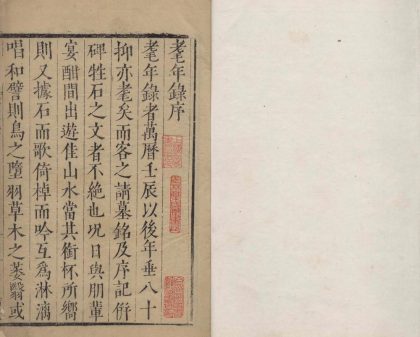 耄年錄序
耄年錄者萬曆壬辰以後年垂八十
抑亦耄矣而客之請墓銘及序記併
碑牲石之文者不絶也況日與朋輩
宴酣間出遊佳山水當其銜杯所嚮
則又據石而歌倚棹而吟互為淋漓
唱和譬則鳥之墮羽草木之萎翳或